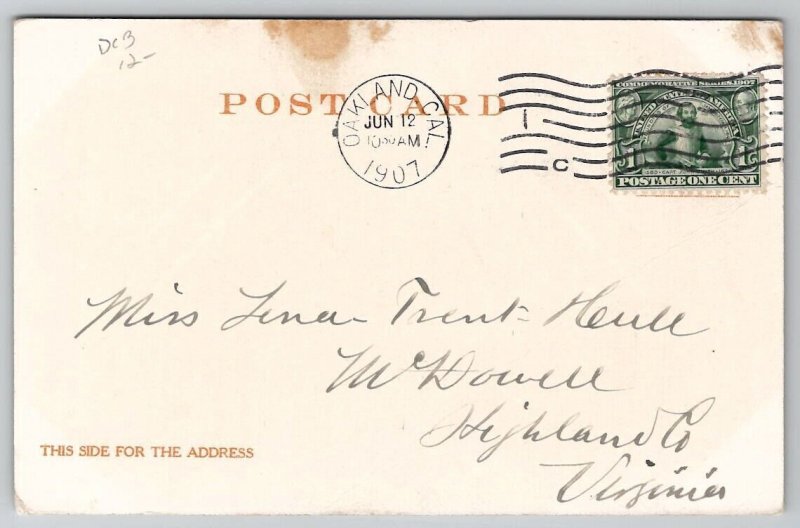 DCB
12-
POST CARD
OAKLAND, CAL.
JUN 12
10 30 AM
1907
1
C
COMMEMORATIVE SERIES 1907
UNITED STATES OF AMERICA
1 1
POSTAGE ONE CENT
Miss Lena Trent Hull
McDowell
Highland Co
Virginia
THIS SIDE FOR THE ADDRESS